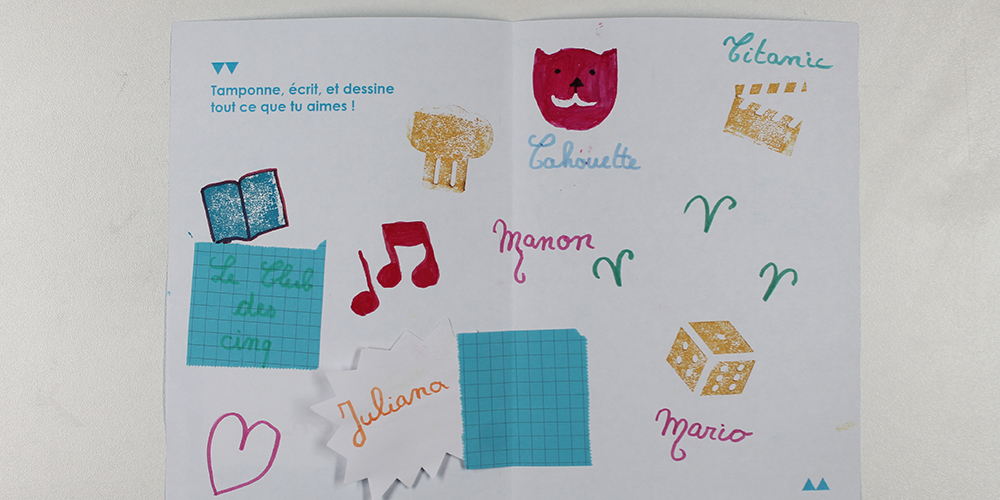 Tamponne, écrit, et dessine
tout ce que tu aimes !
Titanic
Cahouette
Manon
Le Club
des
cinq
Juliana
Mario